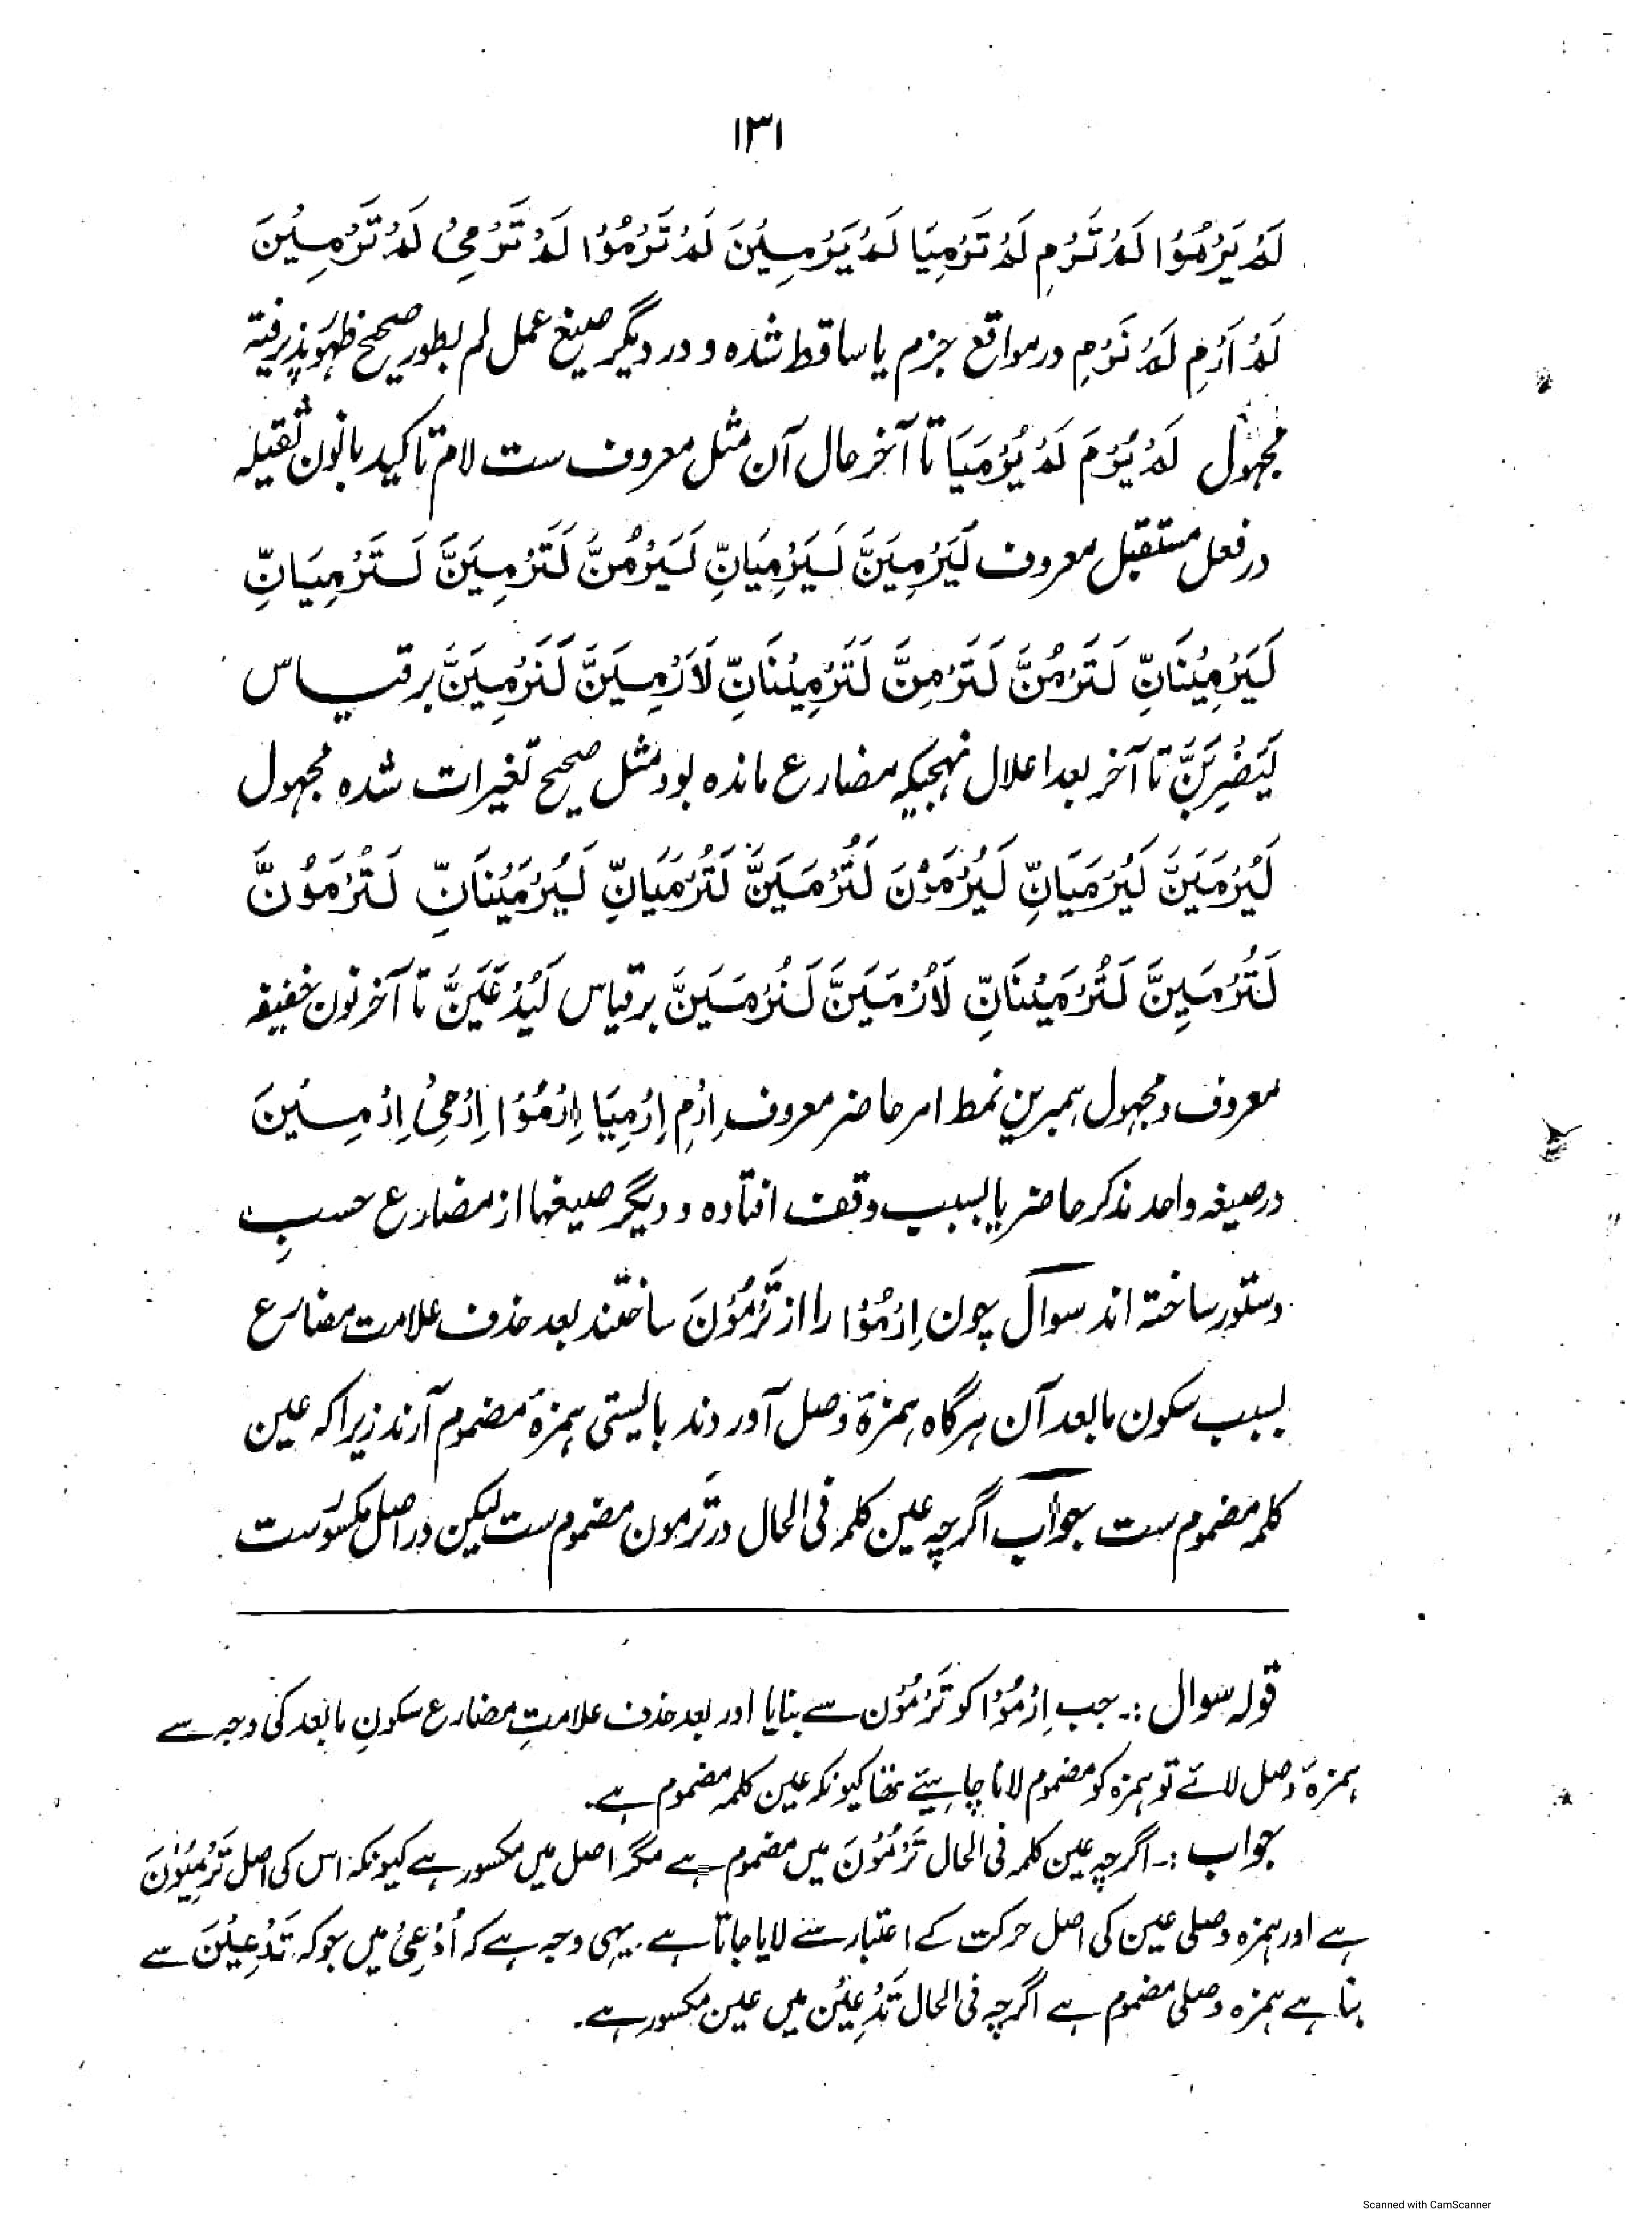 ۱۳۱
لَمْ یَرْمُوْا لَمْ تَرْمِ لَمْ تَرْمِیَا لَمْ یَرْمِیْنَ لَمْ تَرْمُوْا لَمْ تَرْمِیْ لَمْ تَرْمِیْنَ
لَمْ اَرْمِ لَمْ نَرْمِ درمواقع جزم یا ساقط شدہ و در دیگر صیغ عمل لم بطور صحیح ظہور پذیرفتہ
مجہول لَمْ یُرْمَ لَمْ یُرْمَیَا تا آخر حال آن مثل معروف ست لام تاکید بانون ثقیلہ
درفعل مستقبل معروف لَیَرْمِیَنَّ لَیَرْمِیَانِّ لَیَرْمُنَّ لَتَرْمِیَنَّ لَتَرْمِیَانِّ
لَیَرْمِیْنَانِّ لَتَرْمُنَّ لَتَرْمِنَّ لَتَرْمِیْنَانِّ لَاَرْمِیَنَّ لَنَرْمِیَنَّ برقیاس
لَیَضْرِبَنَّ تا آخر بعد اعلال نہجیکہ مضارع ماندہ بود مثل صحیح تغیرات شدہ مجہول
لَیُرْمَیَنَّ لَیُرْمَیَانِّ لَیُرْمَوْنَ لَتُرْمَیَنَّ لَتُرْمَیَانِّ لَیُرْمَیْنَانِّ لَتُرْمَوُنَّ
لَتُرْمَیِنَّ لَتُرْمَیْنَانِّ لَاُرْمَیَنَّ لَنُرْمَیَنَّ برقیاس لَیُدْعَیَنَّ تا آخر نون خفیفہ
معروف و مجہول ہمبرین نمط امر حاضر معروف اِرْمِ اِرْمِیَا اِرْمُوْا اِرْمِیْ اِرْمِیْنَ
در صیغہ واحد مذکر حاضر یا بسبب وقف افتادہ و دیگر صیغہا از مضارع حسبِ
دستور ساختہ اند سوال چون اِرْمُوْا را از تَرْمُوْنَ ساختند بعد حذف علامت مضارع
بسبب سکون مابعد آن ہرگاہ ہمزۂ وصل آوردند بایستی ہمزۂ مضموم آرند زیرا کہ عین
کلمہ مضموم ست جواب اگرچہ عین کلمہ فی الحال در تَرمون مضموم ست لیکن دراصل مکسورست
قولہ سوال :۔ جب اِرْمُوْا کو تَرْمُوْن سے بنایا اور بعد حذف علامتِ مضارع سکونِ مابعد کی وجہ سے
ہمزۂ وصل لائے تو ہمزہ کو مضموم لانا چاہیئے تھا کیونکہ عین کلمہ مضموم ہے۔
جواب :۔ اگرچہ عین کلمہ فی الحال تَرْمُوْنَ میں مضموم ہے مگر اصل میں مکسور ہے کیونکہ اس کی اصل تَرْمِیُوْنَ
ہے اور ہمزہ وصلی عین کی اصل حرکت کے اعتبار سے لایا جاتا ہے۔ یہی وجہ ہے کہ اُدْعِیْ میں جو کہ تَدْعِیْنَ سے
بنا ہے ہمزہ وصلی مضموم ہے اگرچہ فی الحال تَدْعِیْن میں عین مکسور ہے۔
Scanned with CamScanner